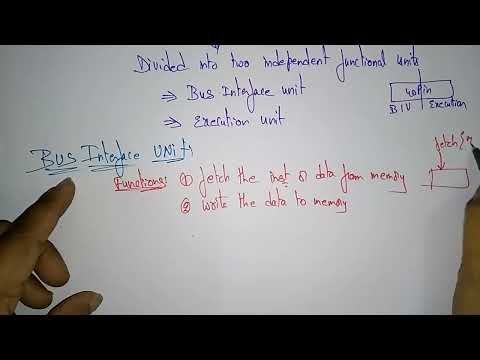 Divided into two independent functional units
⇒ Bus Interface unit
⇒ Execution unit
40 pin
BIU Execution
BUS Interface UNit:
Functions: ① fetch the inst or data from memory
② write the data to memory
fetch